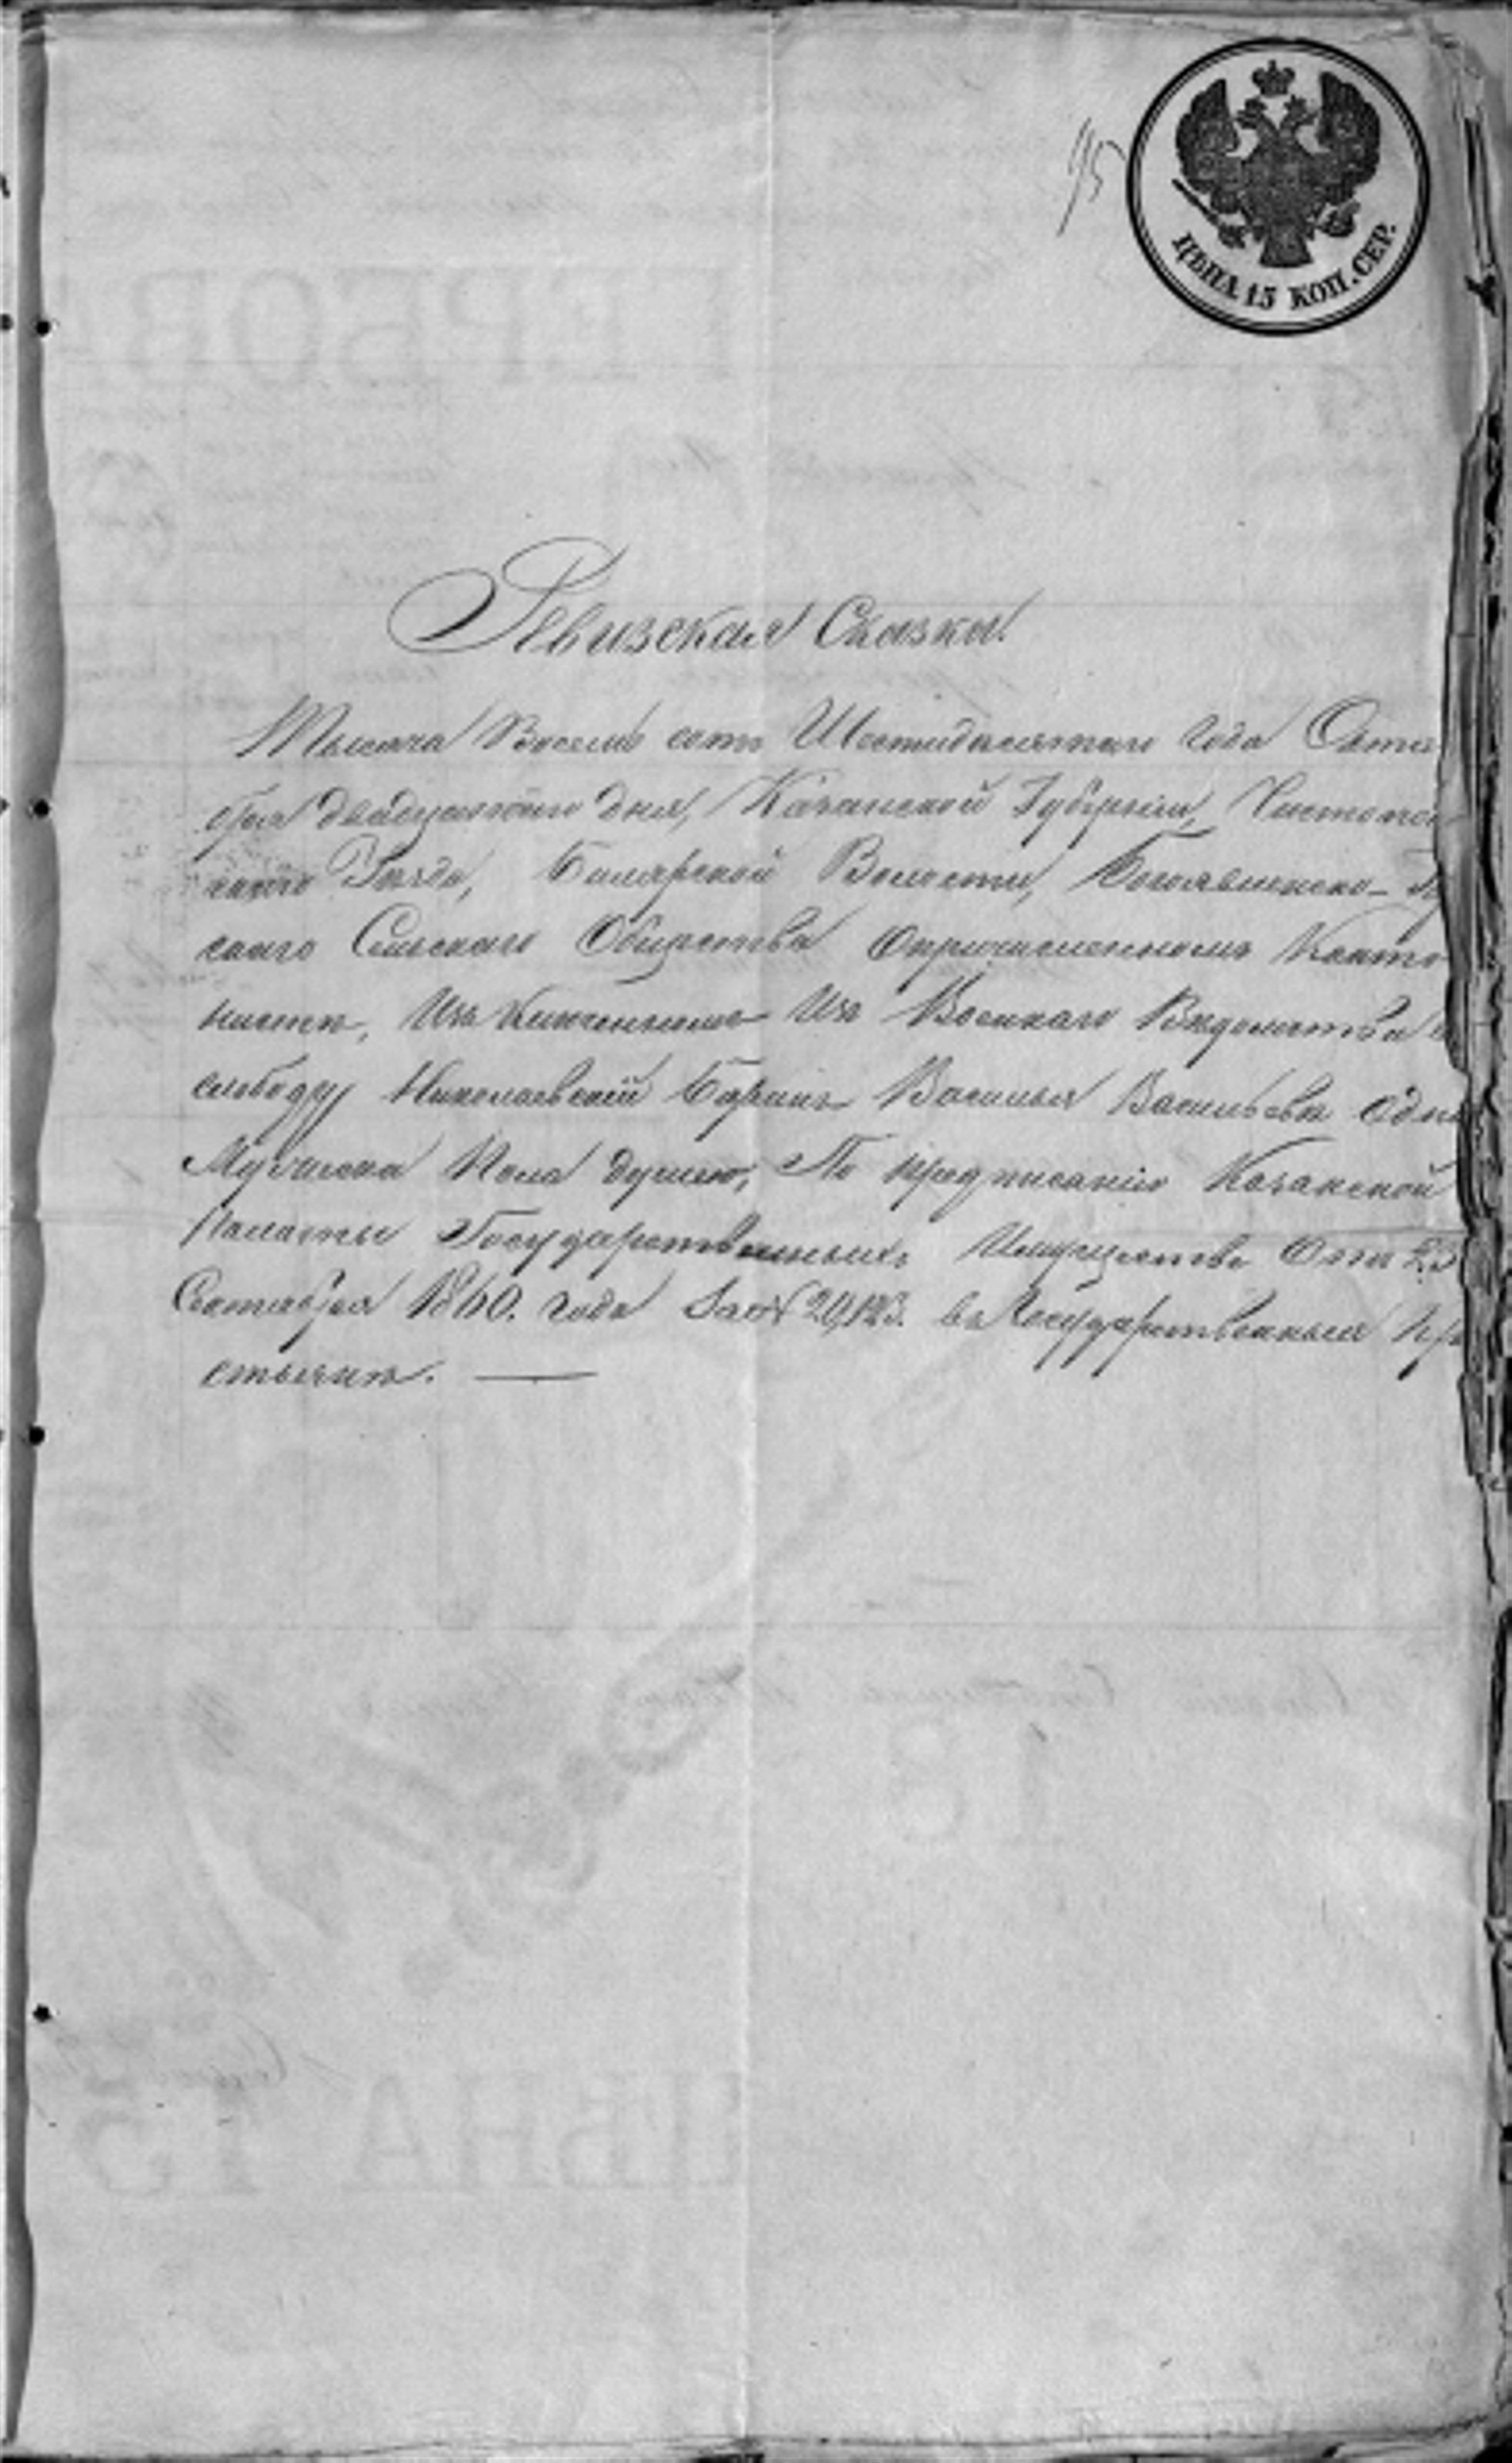 95
ЦѢНА 15 КОП. СЕР.
Ревизская Сказка.
Тысяча Восемь сотъ Шестидесятаго года Октя
бря двадцатаго дня, Казанской Губерніи, Чистопо
скаго Уѣзда, Билярской Волости, Богоявленско-
скаго Сельскаго Общества Опричисленномъ Канто
нистѣ, Изъ Военнаго Вѣдомства
свободу Николаевскій Баранъ Василья Васильевъ Одна
Мужеска Пола душею, По предписанію Казанской
Палаты Государственныхъ Имуществъ Отъ 23
Сентября 1860. года За № 20,123. въ Государственныя Кре
стьяне.